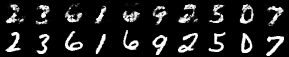 2 3 6 1 6 9 2 5 0 7
2 3 6 1 6 9 2 5 0 7